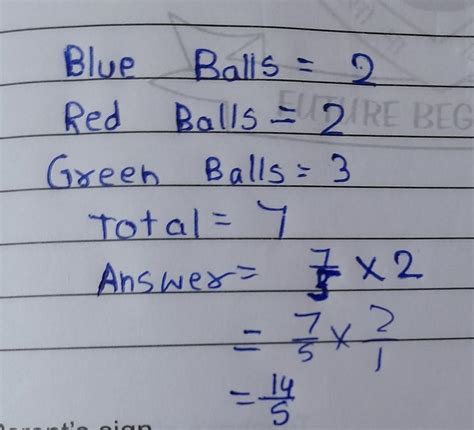 Blue Balls = 2
Red Balls = 2
FUTURE BEG
Green Balls = 3
Total = 7
Answer = 7/5 × 2
= 7/5 × 2/1
= 14/5
Parent's sign